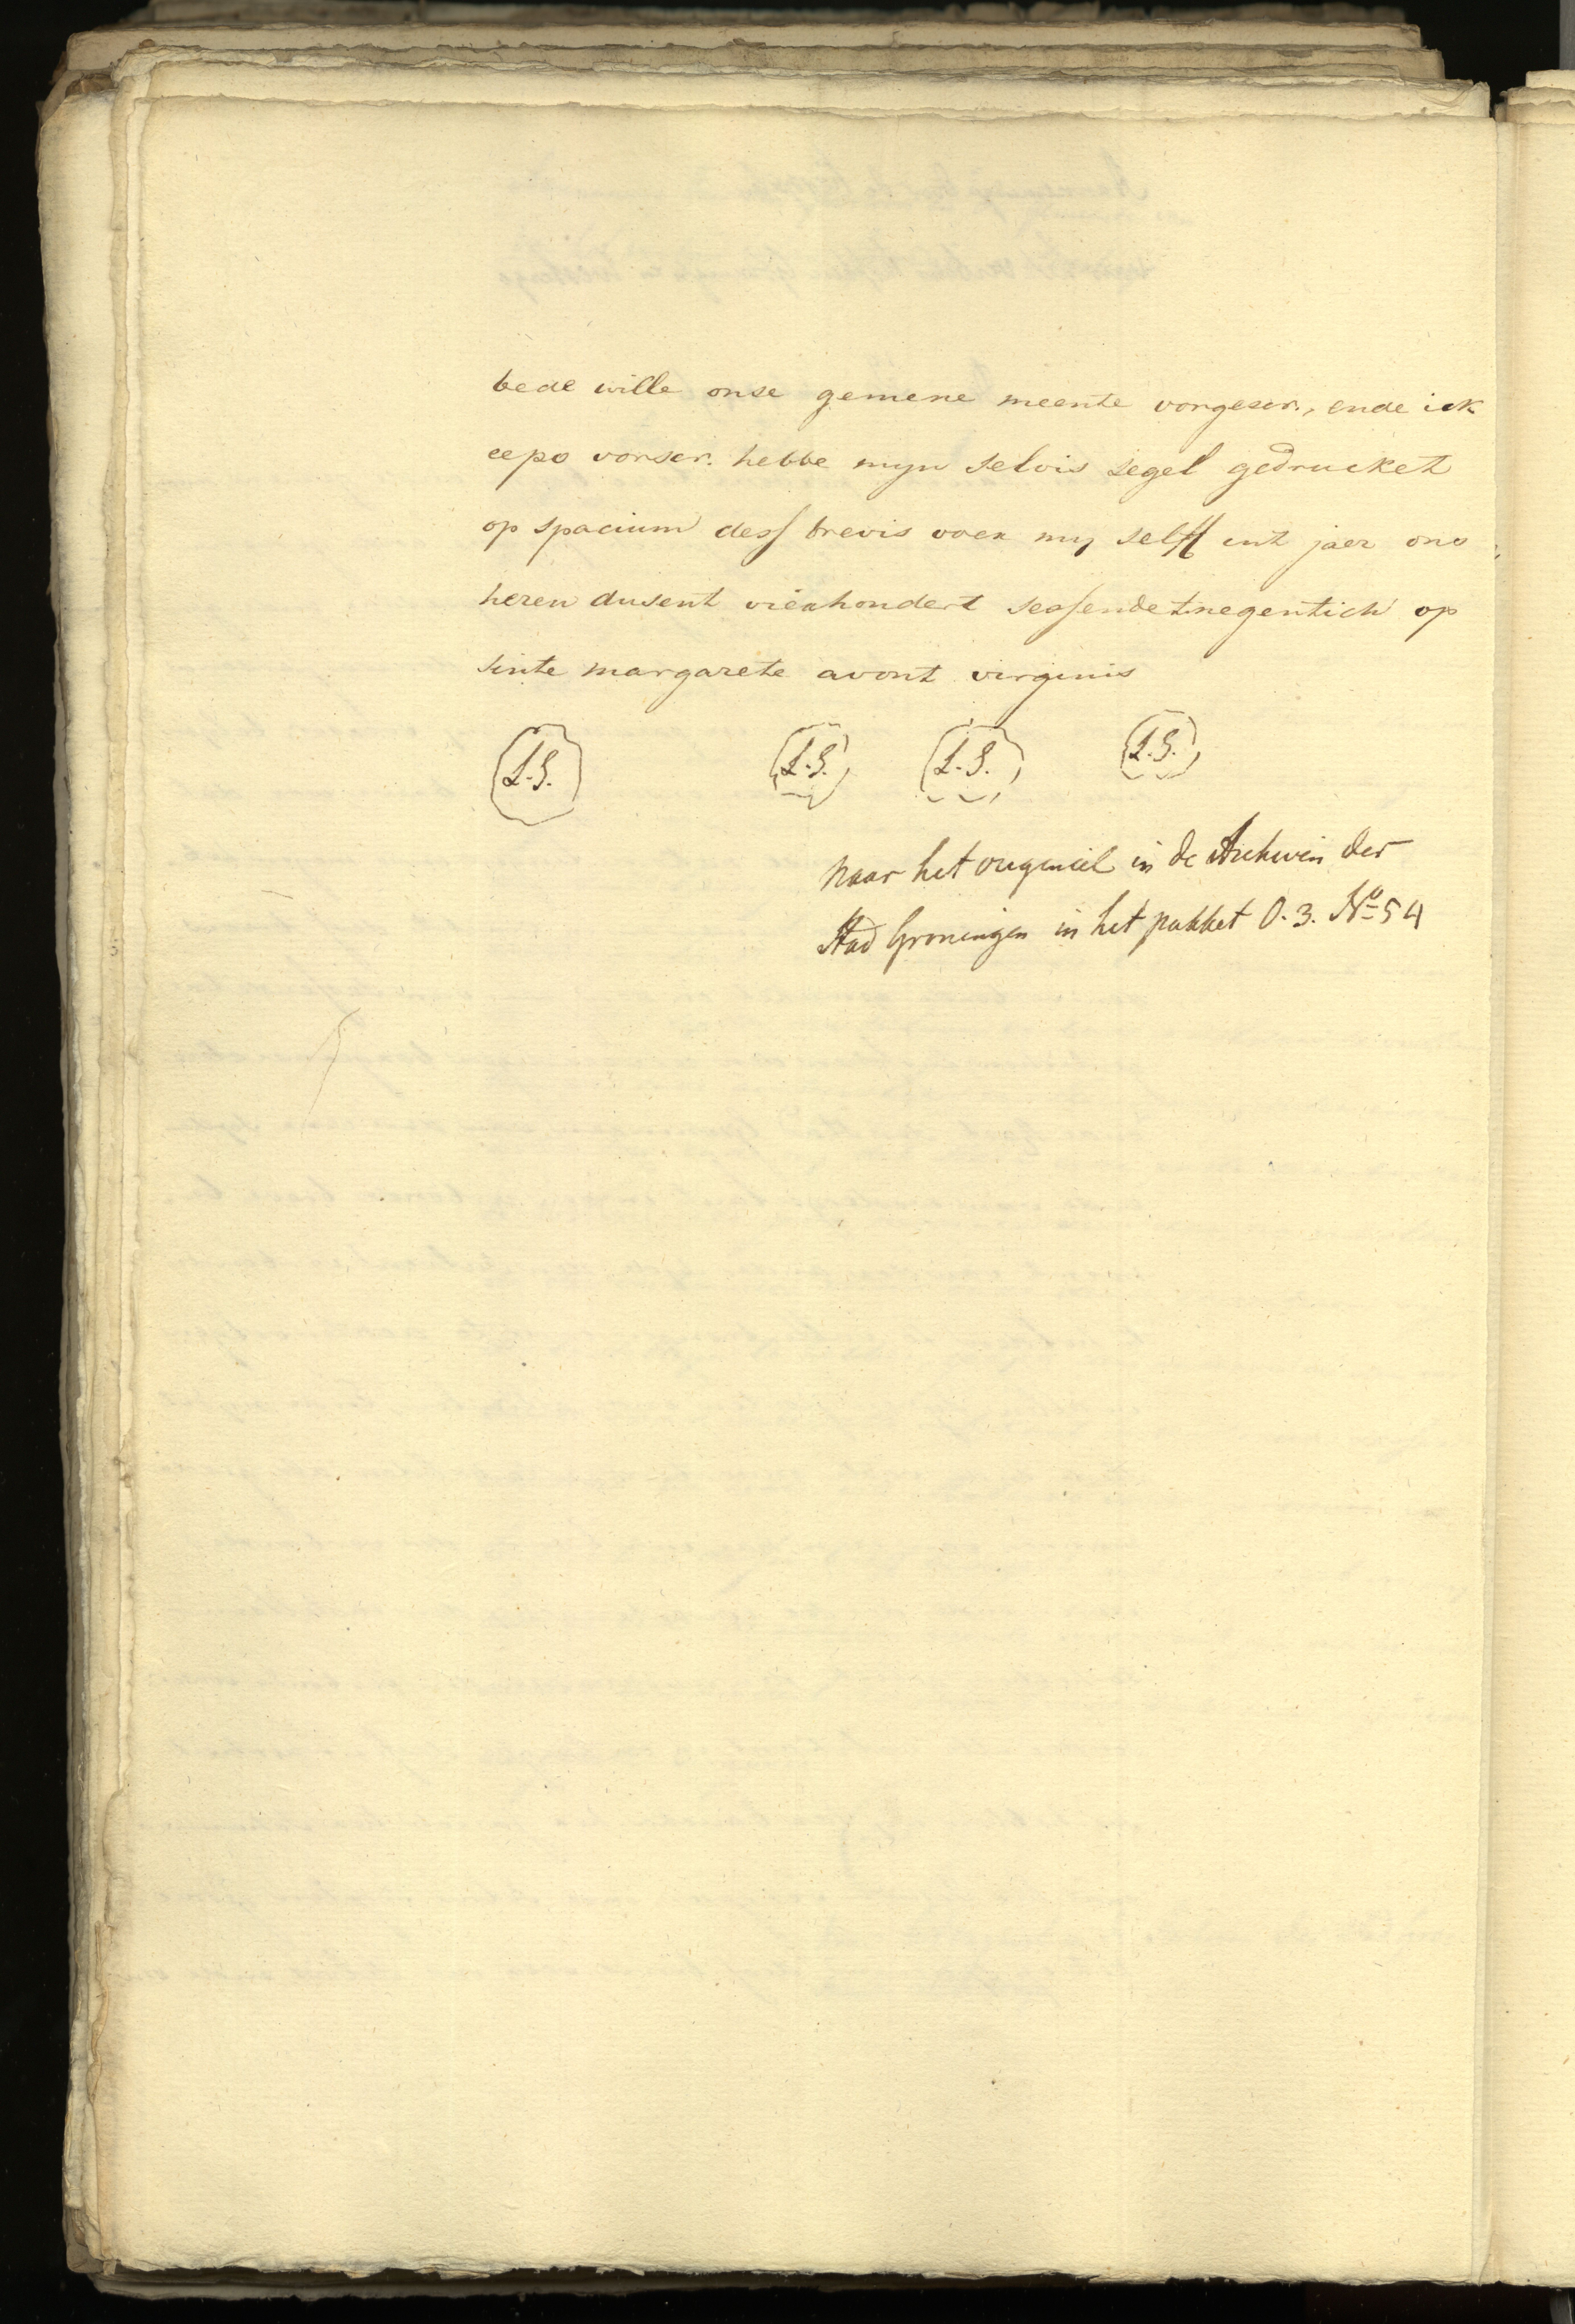 bede wille onse gemene meente vorgescr., ende ick
eepo vorscr. hebbe myn selvis segel gedrucket
op spacium dess brevis voer my selff int jaer ons
heren dusent vierhondert sessendetnegentich op
sinte margarete avont virginis
L.S. L.S. L.S. L.S.
naar het origineel in de Archiven der
Stad Groningen in het pakket O. 3. No 54